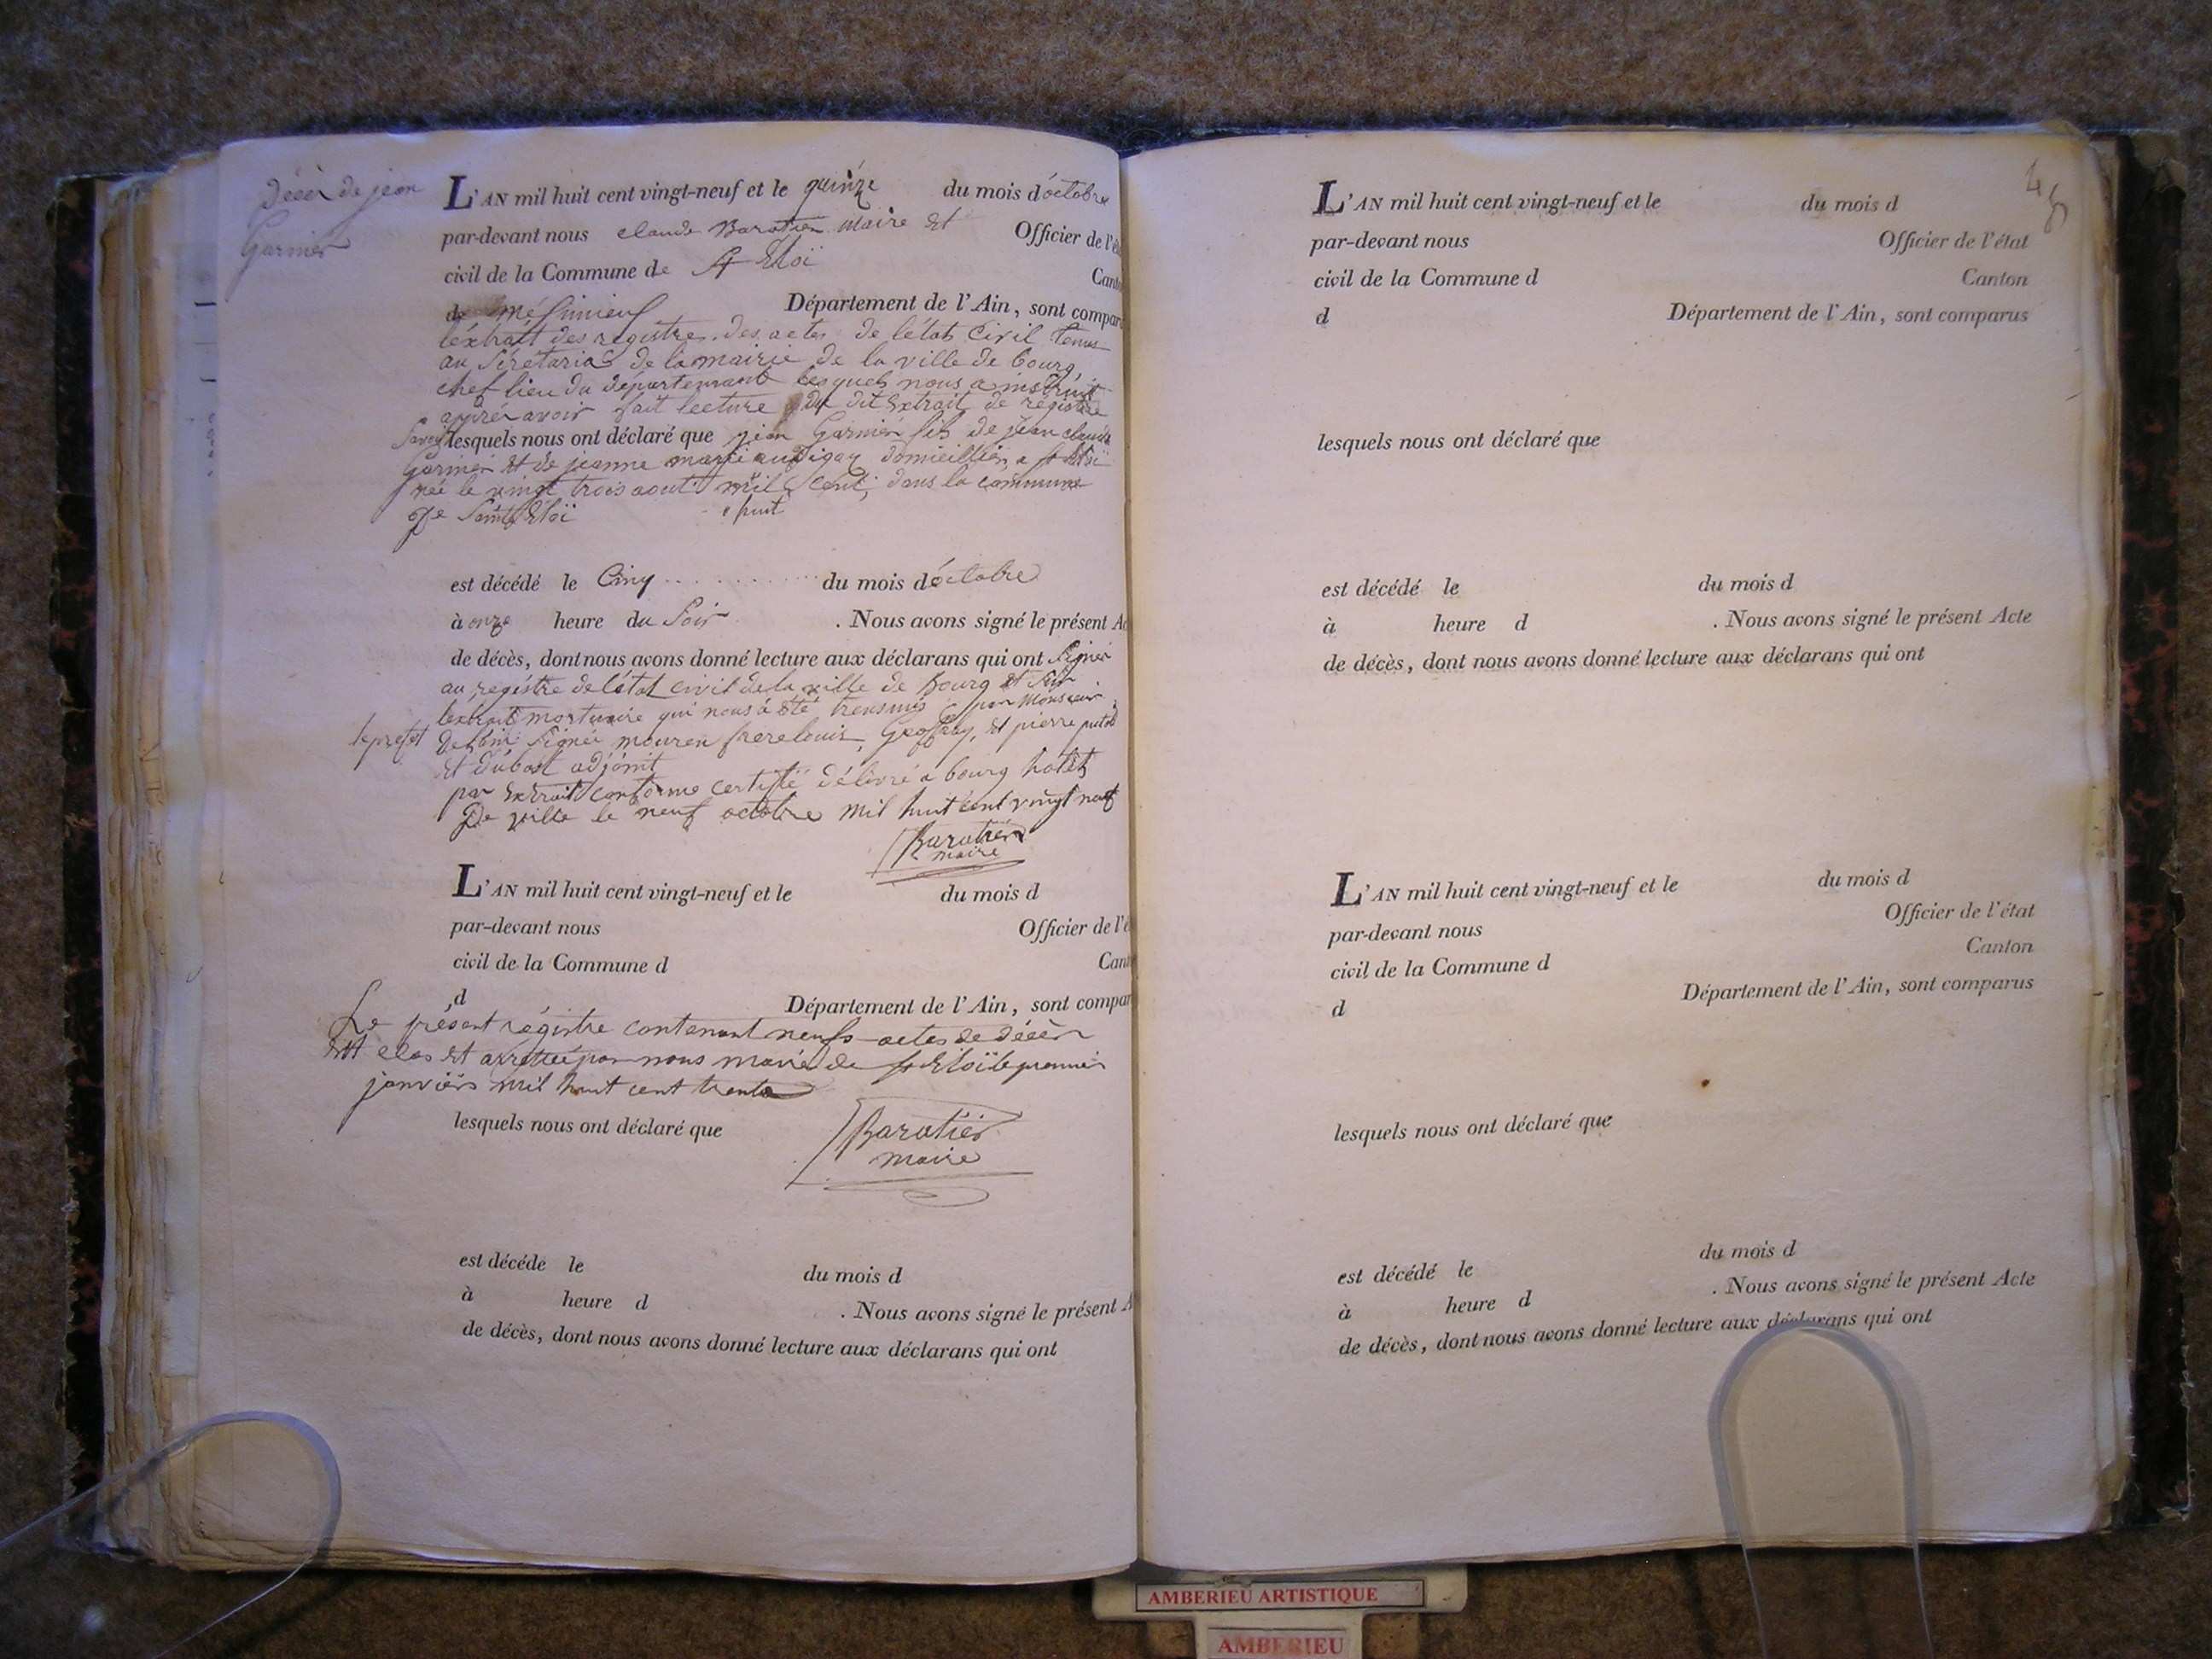 décès de jean
Garnier
L'AN mil huit cent vingt-neuf et le quinze du mois d'octobre
par-devant nous claude Baratier Maire et Officier de l'é
civil de la Commune de St Eloi Cant
de Meximieux Département de l'Ain, sont compar
l'extrait des registre des actes de l'état Civil tenus
au secretariat de la mairie de la ville de bourg
chef lieu du département lesquels nous a instruit
après avoir fait lecture du dit Extrait de registre
savoir lesquels nous ont déclaré que jean Garnier fils de jean claude
Garnier et de jeanne marie domicilliés a St Eloi
née le vingt trois aout mil cent, dans la commune
huit
de Saint Eloi
est décédé le Cinq du mois d'octobre
à onze heure du Soir . Nous avons signé le présent Ac
de décès, dont nous avons donné lecture aux déclarans qui ont Signés
au registre de l'état civil de la ville de Bourg et Sur
l'extrait mortuaire qui nous a été transmis par Monsieur
le prefet De l'ain Signée mouren frere louis, Geoffray, et pierre
et dubost adjoint
par Extrait conforme certifié délivré a bourg hotel
De ville le neuf octobre mil huit cent vingt neuf
Baratier
maire
L'AN mil huit cent vingt-neuf et le du mois d
par-devant nous Officier de l'é
civil de la Commune d Cant
d Département de l'Ain, sont compar
Le présent régistre contenant neufs actes de décès
Et clos et arretté par nous maire de St Eloi le premier
janviers mil huit cent trente
lesquels nous ont déclaré que
Baratier
maire
est décédé le du mois d
à heure d . Nous avons signé le présent A
de décès, dont nous avons donné lecture aux déclarans qui ont
L'AN mil huit cent vingt-neuf et le du mois d
par-devant nous Officier de l'état
civil de la Commune d Canton
d Département de l'Ain, sont comparus
lesquels nous ont déclaré que
est décédé le du mois d
à heure d . Nous avons signé le présent Acte
de décès, dont nous avons donné lecture aux déclarans qui ont
L'AN mil huit cent vingt-neuf et le du mois d
par-devant nous Officier de l'état
civil de la Commune d Canton
d Département de l'Ain, sont comparus
lesquels nous ont déclaré que
est décédé le du mois d
à heure d . Nous avons signé le présent Acte
de décès, dont nous avons donné lecture aux déclarans qui ont
AMBERIEU ARTISTIQUE
AMBERIEU